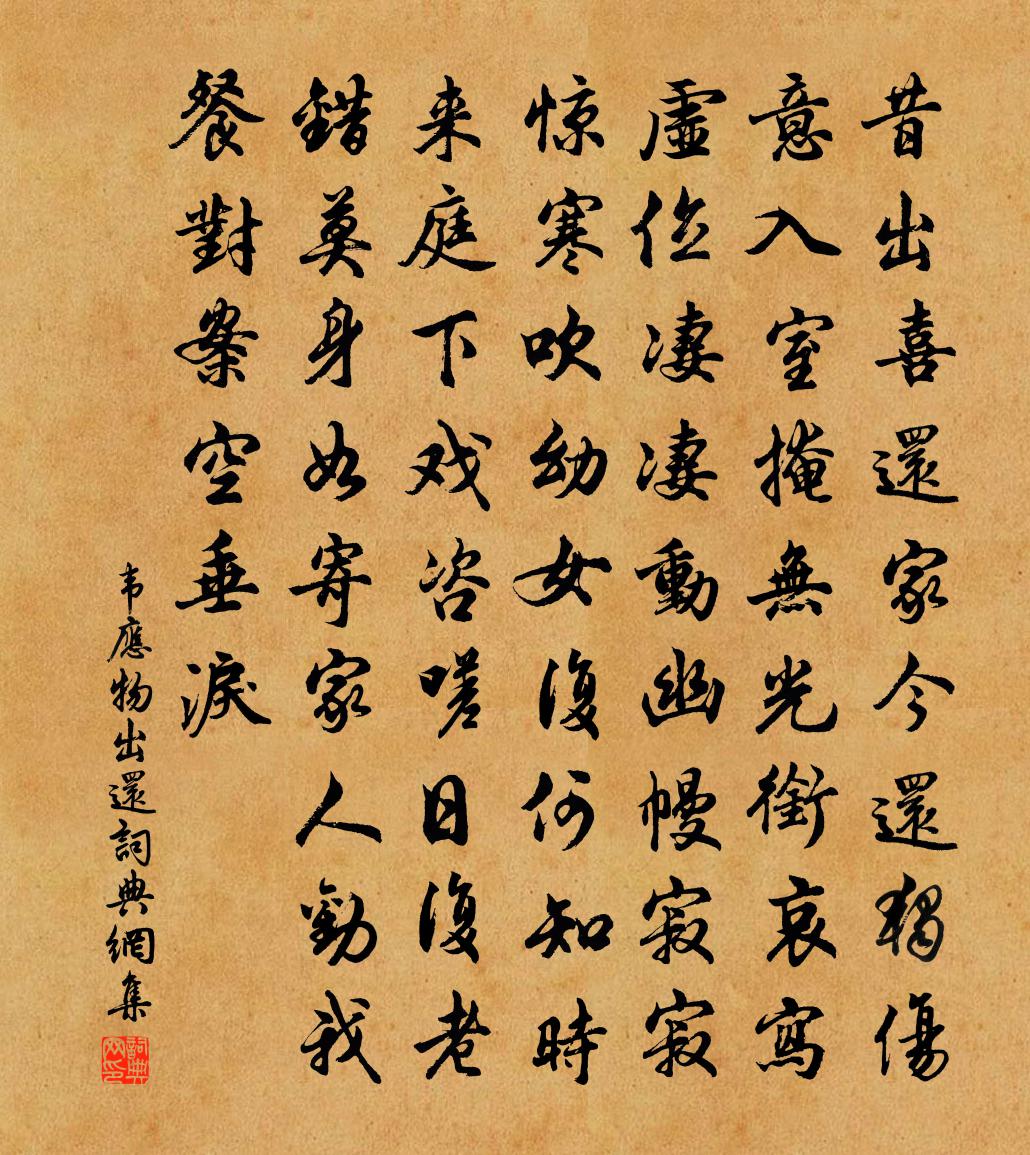 昔出喜還家今還獨傷
意入室掩無光銜哀寫
虛位凄凄動幽幔寂寂
惊寒吹幼女復何知時
来庭下戏咨嗟日復老
錯莫身如寄家人勸我
餐對案空垂淚
韦應物出還詞典網集
詞典网印